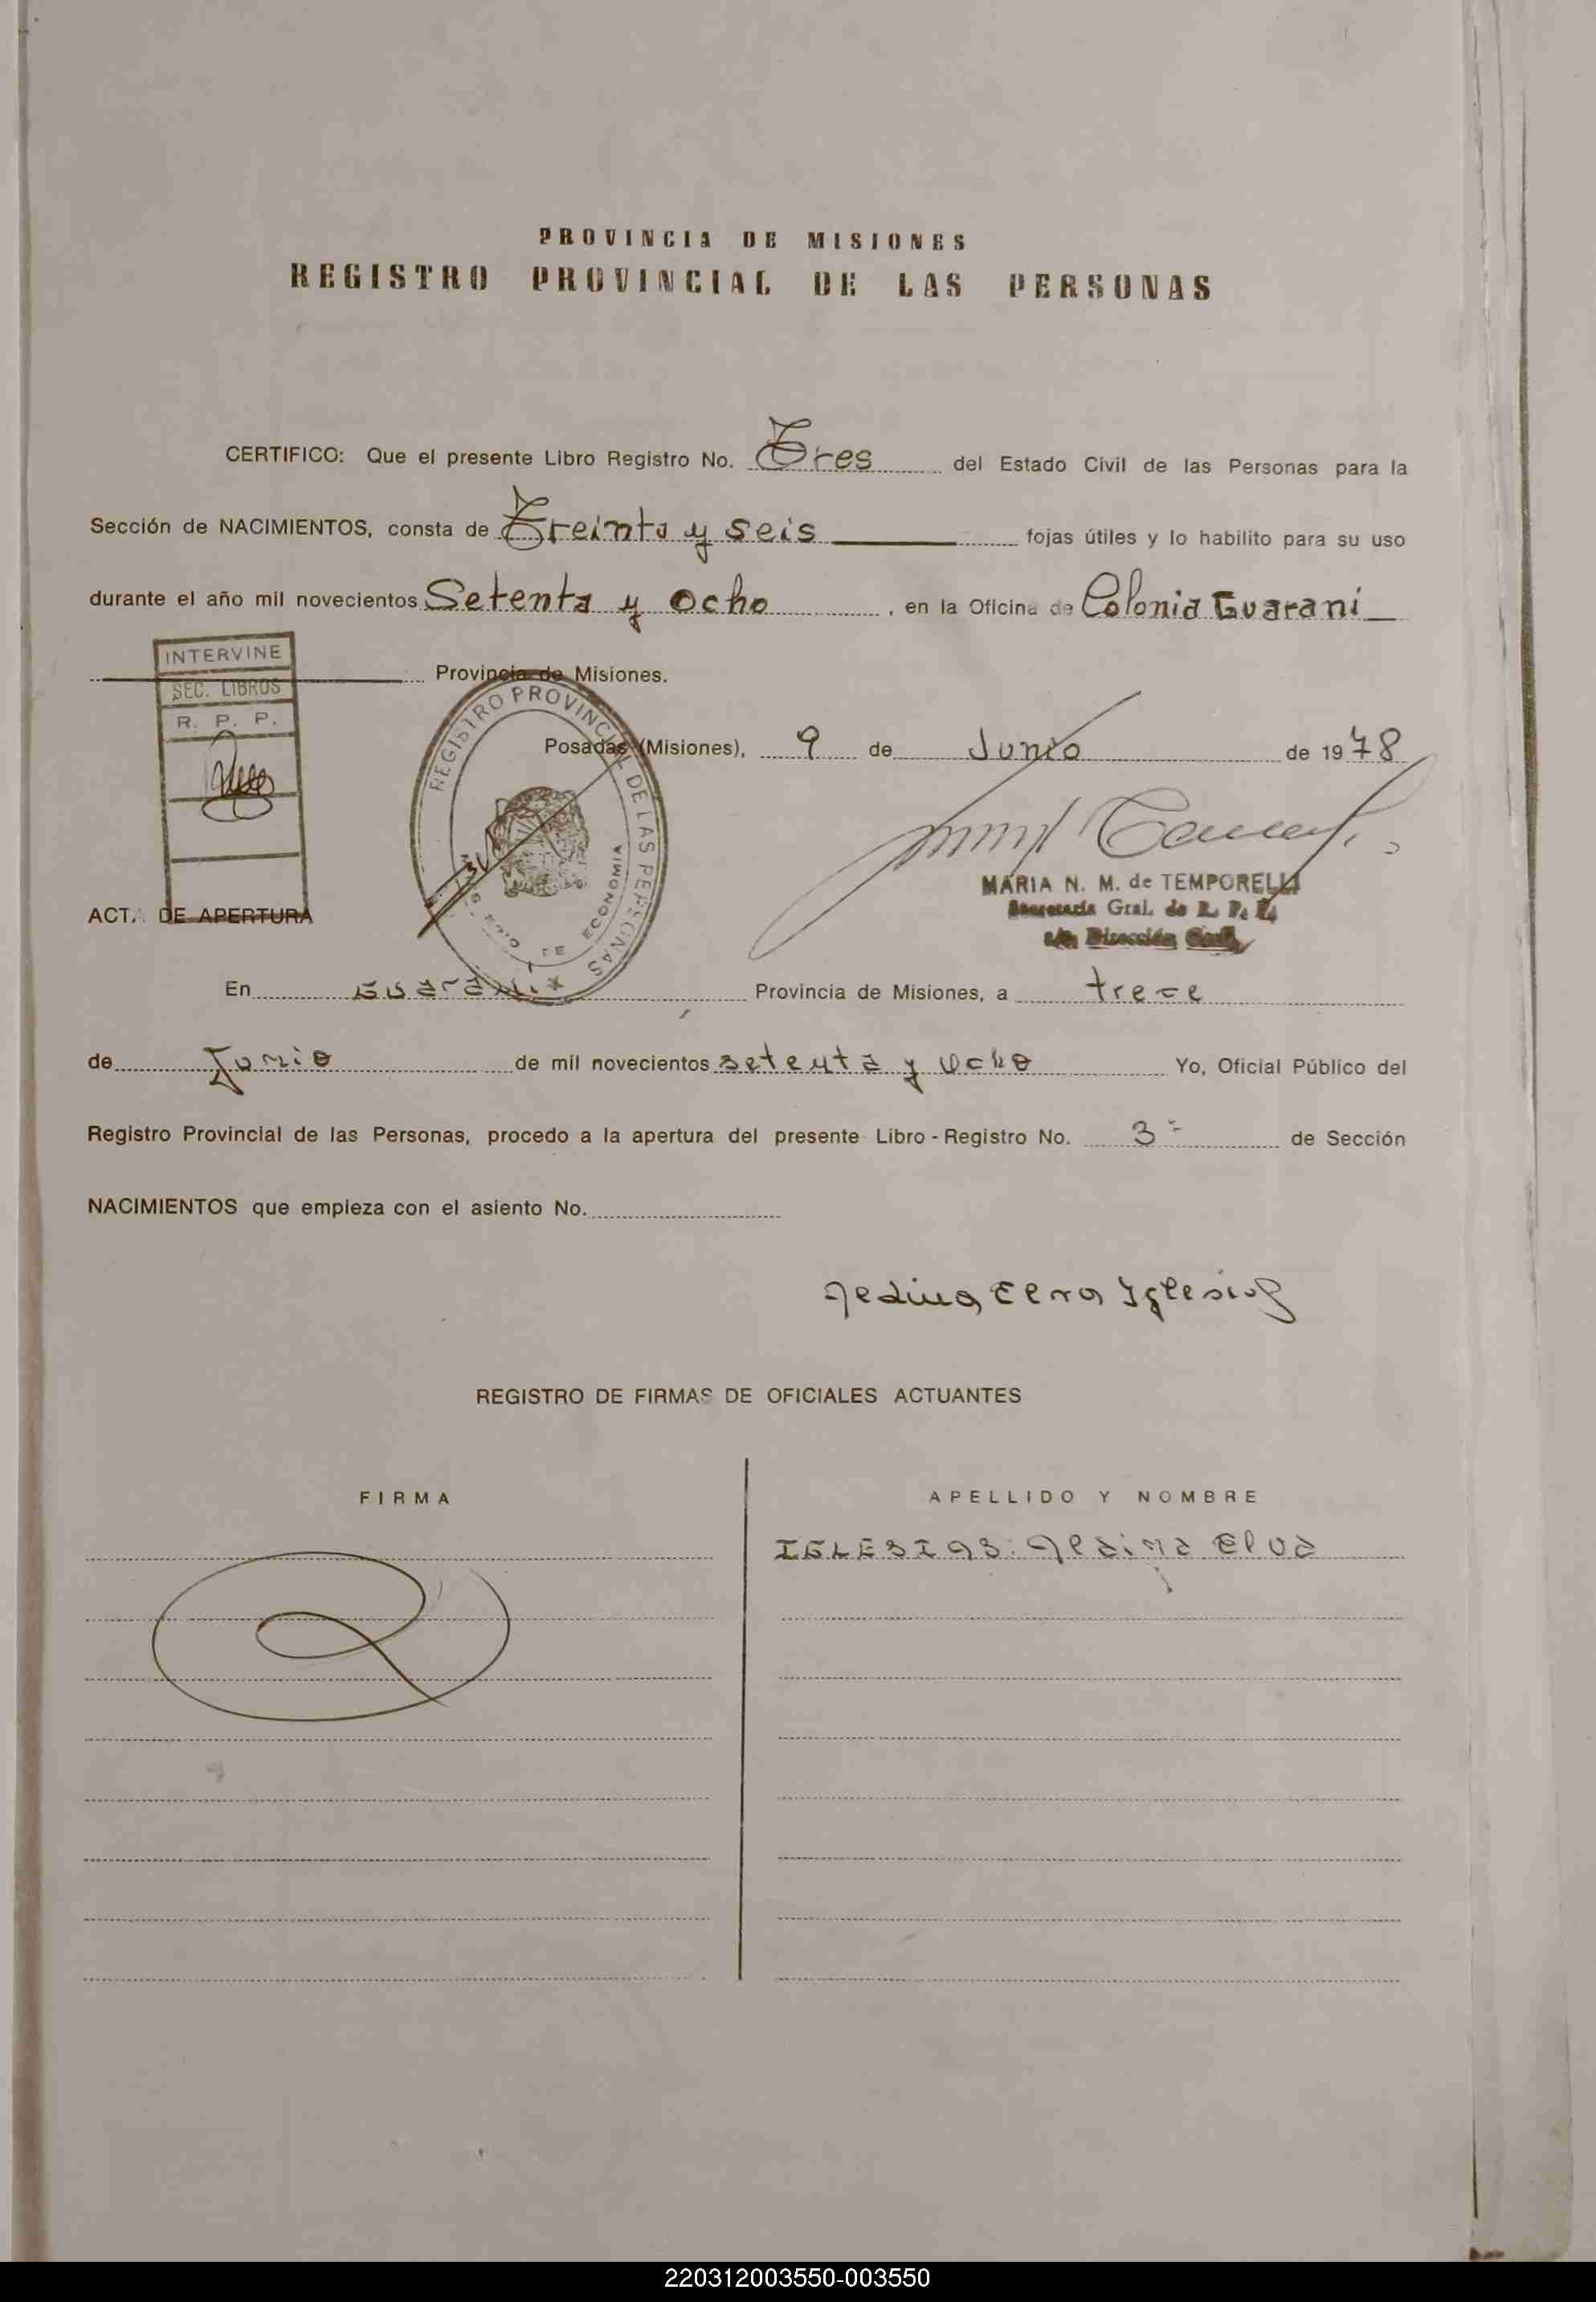 PROVINCIA DE MISIONES
REGISTRO PROVINCIAL DE LAS PERSONAS
CERTIFICO: Que el presente Libro Registro No. Tres del Estado Civil de las Personas para la
Sección de NACIMIENTOS, consta de Treinta y seis fojas útiles y lo habilito para su uso
durante el año mil novecientos Setenta y Ocho, en la Oficina de Colonia Guaraní
Provincia de Misiones.
INTERVINE
SEC. LIBROS
R. P. P.
REGISTRO PROVINCIAL DE LAS PERSONAS
DE ECONOMIA
Posadas (Misiones), 9 de Junio de 1978
MARIA N. M. de TEMPORELLI
Secretaria Gral. de R. P. P.
a/c. Dirección Gral.
ACTA DE APERTURA
En Guaraní Provincia de Misiones, a trece
de Junio de mil novecientos setenta y Ocho Yo, Oficial Público del
Registro Provincial de las Personas, procedo a la apertura del presente Libro - Registro No. 3 de Sección
NACIMIENTOS que empieza con el asiento No.
Iglesias
REGISTRO DE FIRMAS DE OFICIALES ACTUANTES
FIRMA
APELLIDO Y NOMBRE
IGLESIAS:
220312003550-003550